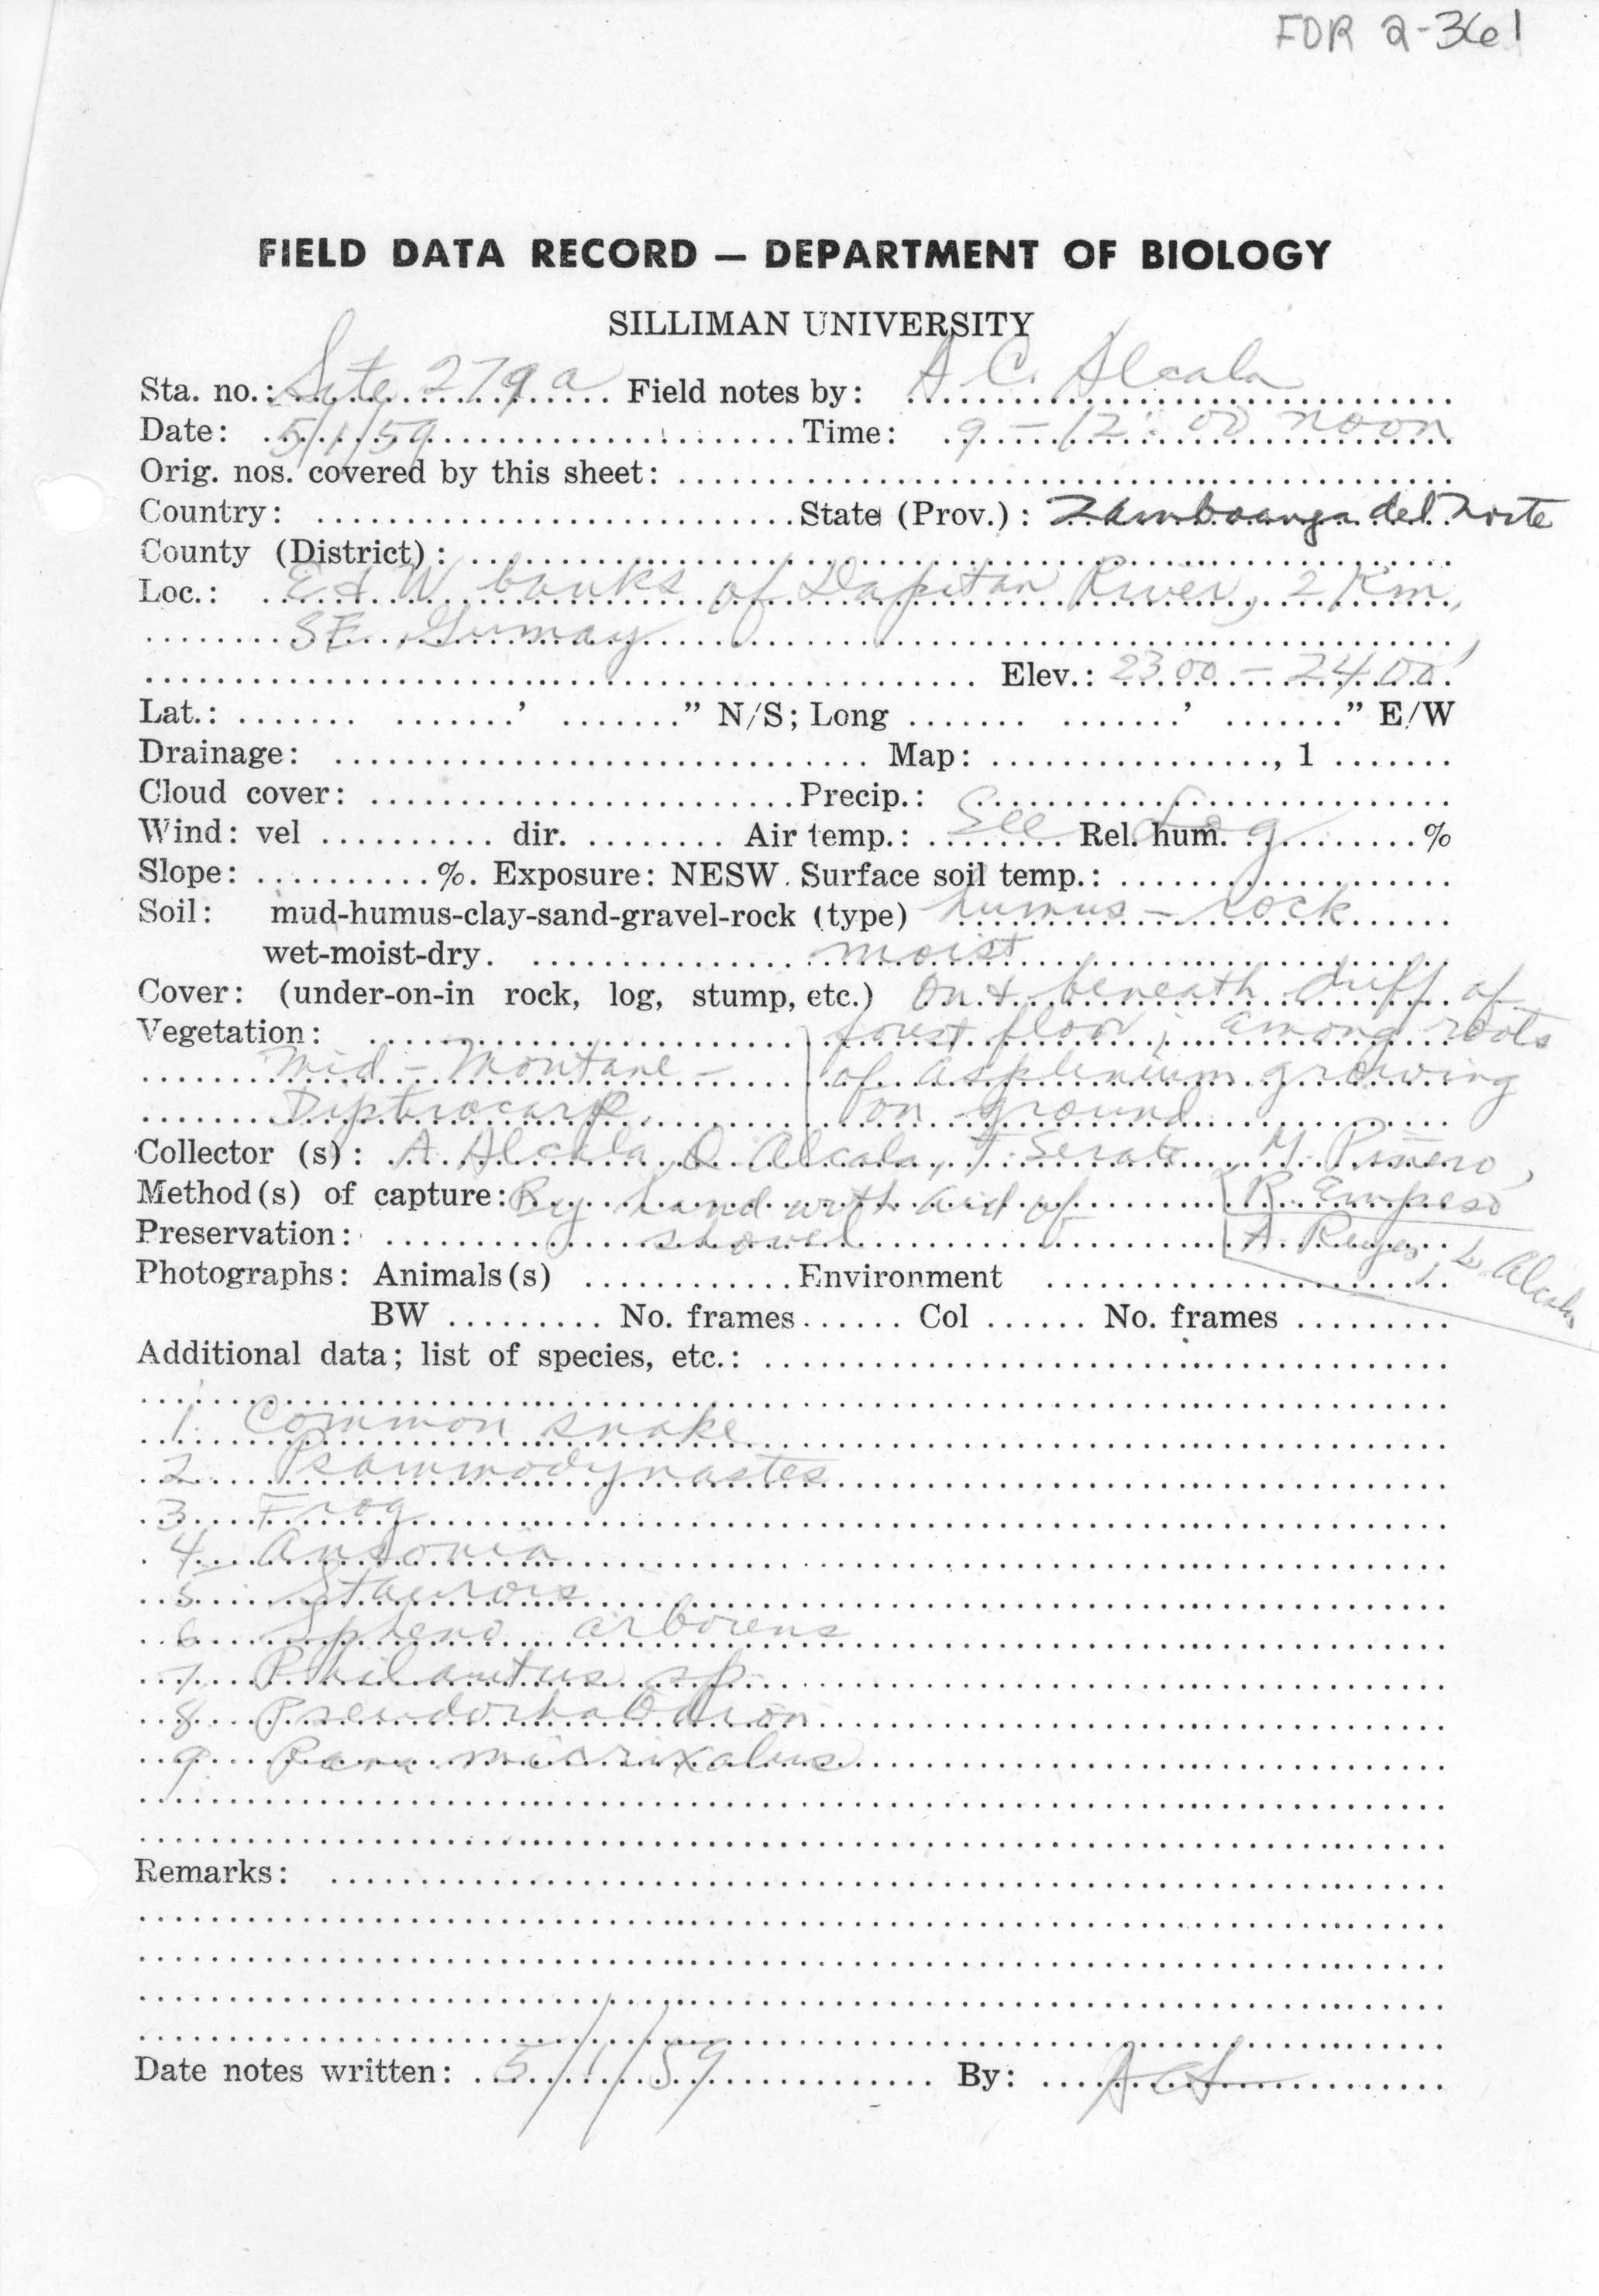 FDR 2-361
FIELD DATA RECORD — DEPARTMENT OF BIOLOGY
SILLIMAN UNIVERSITY
Sta. no.: Site 279a Field notes by: A C. Alcala
Date: 5/1/59 Time: 9 - 12:00 noon
Orig. nos. covered by this sheet:
Country: State (Prov.): Zamboanga del Norte
County (District):
Loc.: E & W banks of Dapitan River, 2 Km,
SE Gumay
Elev.: 2300 - 2400'
Lat.: ' " N/S; Long ' " E/W
Drainage: Map: , 1
Cloud cover: Precip.:
Wind: vel dir. Air temp.: See Log Rel. hum. %
Slope: %. Exposure: NESW. Surface soil temp.:
Soil: mud-humus-clay-sand-gravel-rock (type) humus - rock
wet-moist-dry. moist
Cover: (under-on-in rock, log, stump, etc.) On & beneath duff of
Vegetation: forest floor; among roots
Mid - Montane - of asplenium growing
Dipterocarp. on ground
Collector (s): A. Alcala, D. Alcala, F. Serate M. Piñero,
Method(s) of capture: By hand with aid of R. Empeso
Preservation: shovel A. Reyes, L. Alcala
Photographs: Animals(s) Environment
BW No. frames Col No. frames
Additional data; list of species, etc.:
1. Common snake
2 Psammodynastes
3. Frog
4. Ansonia
5 Staurois
6 Spheno arboreus
7. Philautus sp.
8. Pseudorhabdion
9. Rana micrixalus
Remarks:
Date notes written: 5/1/59 By: